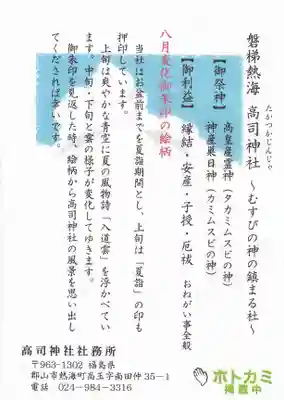 磐梯熱海 高司神社 ～むすびの神の鎮まる社～
たかつかじんじゃ
【御祭神】 高皇産霊神(タカミムスビの神)
神産巣日神(カミムスビの神)
【御利益】 縁結・安産・子授・厄祓 おねがい事全般
八月変化御朱印の絵柄
当社はお盆前までを夏詣期間とし、上旬は「夏詣」の印も
押印しています。
上旬は爽やかな青空に夏の風物詩「入道雲」を浮かべてい
ます。中旬・下旬と雲の様子が変化してゆきます。
御朱印を見返した時、絵柄から高司神社の風景を思い出し
てくだされば幸いです。
高司神社社務所
〒963-1302 福島県
郡山市熱海町高玉字南田仲35-1
電話 024-984-3316
ホトカミ
掲載中